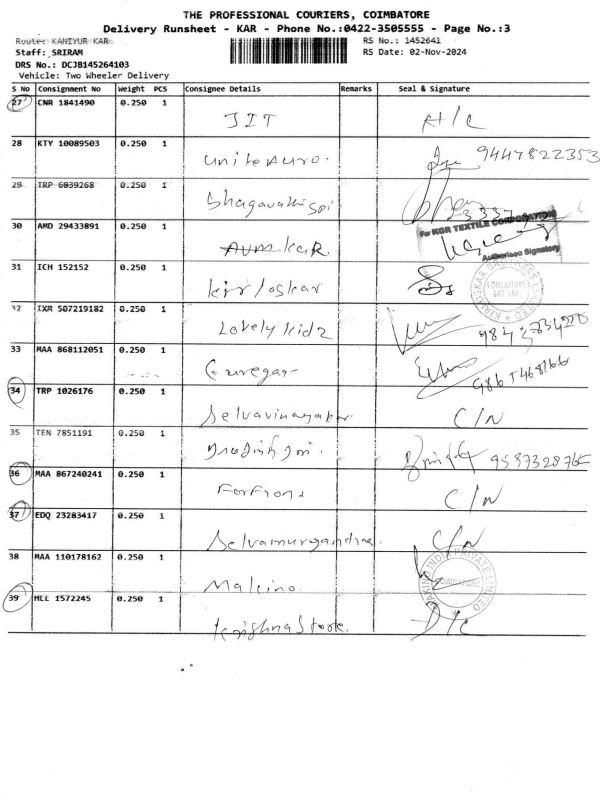 THE PROFESSIONAL COURIERS, COIMBATORE
Delivery Runsheet - KAR - Phone No.:0422-3505555 - Page No.:3
Route: KANIYUR KAR
RS No.: 1452641
Staff: SRIRAM
RS Date: 02-Nov-2024
DRS No.: DCJB145264103
Vehicle: Two Wheeler Delivery
S No Consignment No Weight PCS Consignee Details Remarks Seal & Signature
27 CNR 1841490 0.250 1 JIT
28 KTY 10089503 0.250 1 9447822353
29 TRP 6039268 0.250 1
For KGR TEXTILE CORPORATION
30 AMD 29433891 0.250 1
Authorised Signatory
31 ICH 152152 0.250 1 Kirloskar
32 IXM 507219182 0.250 1 Lovely Kidz
33 MAA 868112051 0.250 1
34 TRP 1026176 0.250 1 C/N
35 TEN 7851191 0.250 1
36 MAA 867240241 0.250 1 C/N
37 EDQ 23283417 0.250 1 C/N
38 MAA 110178162 0.250 1 Makino
MAKINO INDIA PRIVATE LIMITED
COIMBATORE
39 MLE 1572245 0.250 1 Krishna Store. D/C